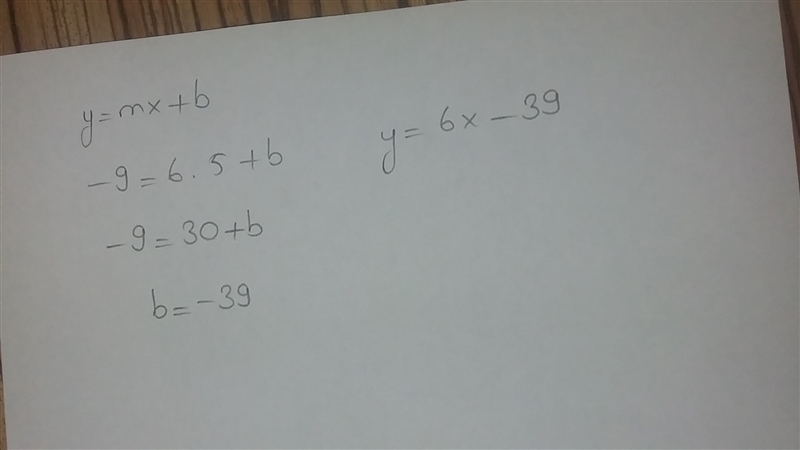 y=mx+b
-9=6.5+b
-9=30+b
b=-39
y=6x-39